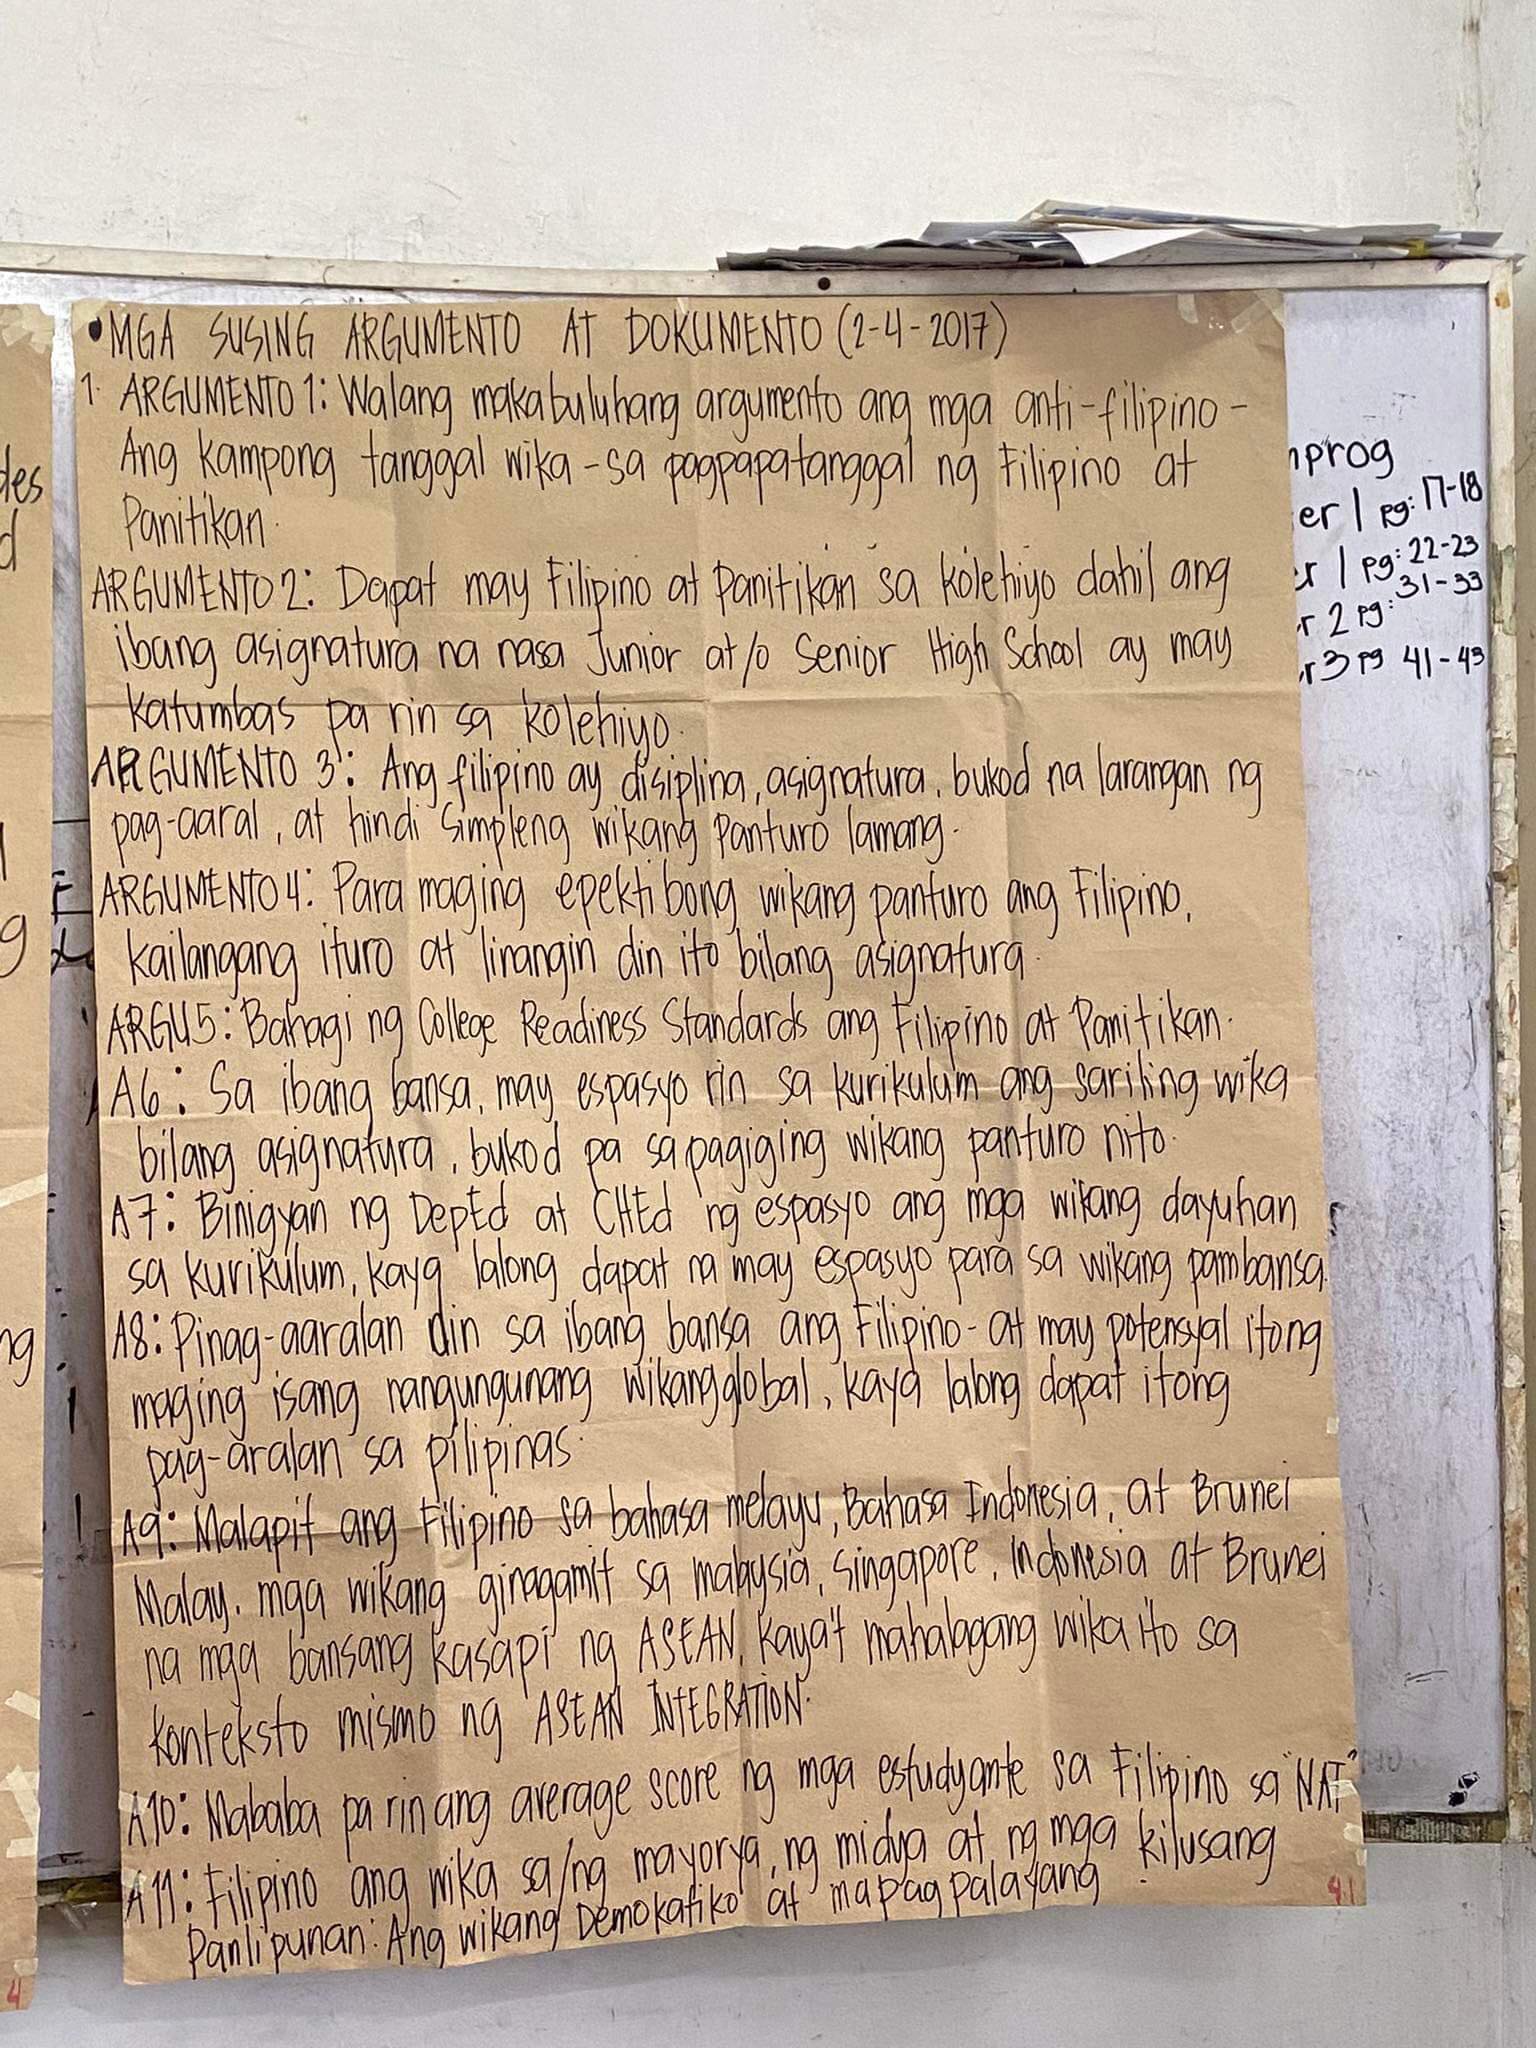 • MGA SUSING ARGUMENTO AT DOKUMENTO (2-4-2017)
1. ARGUMENTO 1: Walang makabuluhang argumento ang mga anti-filipino -
Ang kampong tanggal wika - sa pagpapatanggal ng Filipino at
Panitikan.
ARGUMENTO 2: Dapat may Filipino at Panitikan sa kolehiyo dahil ang
ibang asignatura na nasa Junior at/o Senior High School ay may
katumbas pa rin sa kolehiyo.
ARGUMENTO 3: Ang filipino ay disiplina, asignatura, bukod na larangan ng
pag-aaral, at hindi simpleng wikang panturo lamang.
ARGUMENTO 4: Para maging epektibong wikang panturo ang Filipino,
kailangang ituro at linangin din ito bilang asignatura.
ARGU 5: Bahagi ng College Readiness Standards ang Filipino at Panitikan.
A6: Sa ibang bansa, may espasyo rin sa kurikulum ang sariling wika
bilang asignatura, bukod pa sa pagiging wikang panturo nito.
A7: Binigyan ng DepEd at CHEd ng espasyo ang mga wikang dayuhan
sa kurikulum, kaya lalong dapat na may espasyo para sa wikang pambansa.
A8: Pinag-aaralan din sa ibang bansa ang Filipino - at may potensyal itong
maging isang nangungunang wikang global, kaya lalong dapat itong
pag-aralan sa pilipinas.
A9: Malapit ang Filipino sa bahasa melayu, Bahasa Indonesia, at Brunei
Malay, mga wikang ginagamit sa malaysia, singapore, Indonesia at Brunei
na mga bansang kasapi ng ASEAN, kaya't mahalagang wika ito sa
konteksto mismo ng ASEAN INTEGRATION.
A10: Mababa pa rin ang average score ng mga estudyante sa Filipino sa "NAT"
A11: Filipino ang wika sa/ng mayorya, ng midya at ng mga kilusang
Panlipunan: Ang wikang Demokatiko at mapagpalayang.
4.1
nprog
er 1 pg: 17-18
er 1 pg: 22-23
31-33
r 2 pg:
r 3 pg 41-43
des
d
g
ng
4